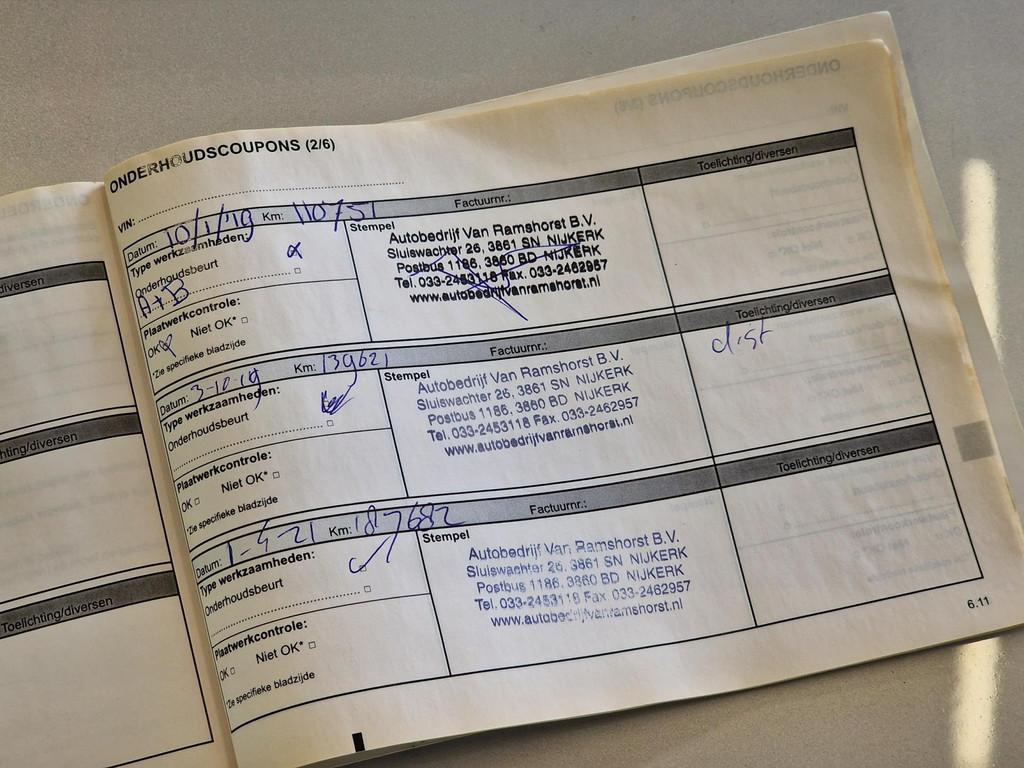 ONDERHOUDSCOUPONS (2/6)
VIN:
Datum: 10/1/19 Km: 110751 Factuurnr.: Toelichting/diversen
Type werkzaamheden:
Onderhoudsbeurt
A+B
Plaatwerkcontrole:
OK Niet OK*
*Zie specifieke bladzijde
Stempel
Autobedrijf Van Ramshorst B.V.
Sluiswachter 26, 3861 SN NIJKERK
Postbus 1186, 3860 BD NIJKERK
Tel. 033-2453118 Fax. 033-2462957
www.autobedrijfvanramshorst.nl
Datum: 3-10-19 Km: 139621 Factuurnr.: Toelichting/diversen
Type werkzaamheden:
Onderhoudsbeurt
Plaatwerkcontrole:
OK Niet OK*
*Zie specifieke bladzijde
Stempel
Autobedrijf Van Ramshorst B.V.
Sluiswachter 26, 3861 SN NIJKERK
Postbus 1186, 3860 BD NIJKERK
Tel. 033-2453118 Fax. 033-2462957
www.autobedrijfvanramshorst.nl
dist
Datum: 1-4-21 Km: 187682 Factuurnr.: Toelichting/diversen
Type werkzaamheden:
Onderhoudsbeurt
Plaatwerkcontrole:
OK Niet OK*
*Zie specifieke bladzijde
Stempel
Autobedrijf Van Ramshorst B.V.
Sluiswachter 26, 3861 SN NIJKERK
Postbus 1186, 3860 BD NIJKERK
Tel. 033-2453118 Fax. 033-2462957
www.autobedrijfvanramshorst.nl
6.11
Toelichting/diversen